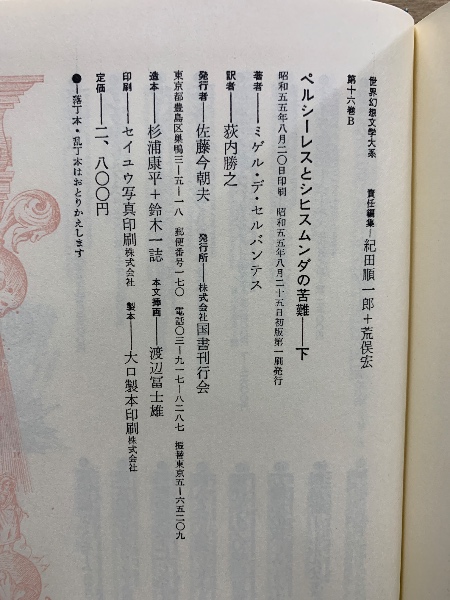 世界幻想文学大系　責任編集──紀田順一郎＋荒俣宏
第十六巻B
ペルシーレスとシヒスムンダの苦難──下
昭和五五年八月二〇日印刷　昭和五五年八月二十五日初版第一刷発行
著者──ミゲル・デ・セルバンテス
訳者──荻内勝之
発行者──佐藤今朝夫　発行所──株式会社国書刊行会
東京都豊島区巣鴨三─五─一八　郵便番号一七〇　電話〇三─九一七─八二八七　振替東京五─六五二〇九
造本──杉浦康平＋鈴木一誌　本文挿画──渡辺冨士雄
印刷──セイユウ写真印刷株式会社　製本──大口製本印刷株式会社
定価──二、八〇〇円
●──落丁本・乱丁本はおとりかえします